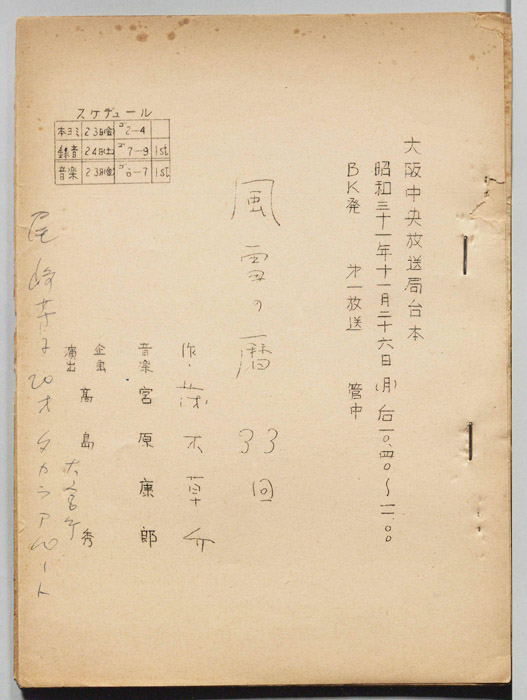 大阪中央放送局台本
昭和三十一年十一月二十六日(月)后一〇.四〇~一一.〇〇
BK発 才一放送 管中
スケヂュール
本ヨミ 23日(金) ゴ2-4
録音 24日(土) ゴ7-9 1st
音楽 23日(金) ゴ6-7 1st
風雪の暦 33回
作・茂木草介
音楽 宮原康郎
企画
演出 高島 秀
尾崎 20才 タカラアパート